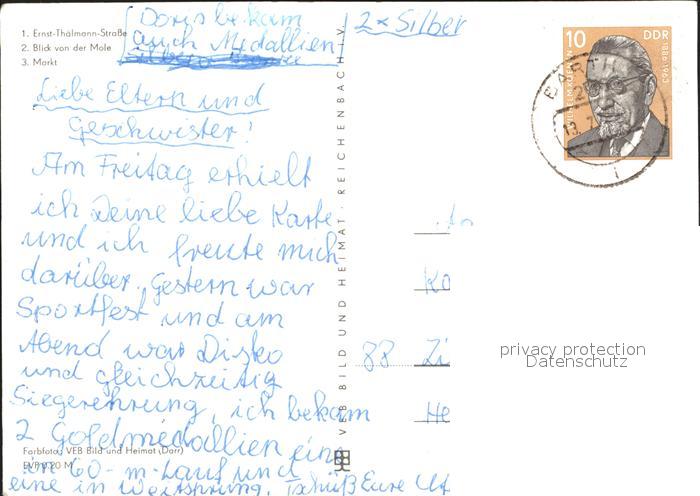 1. Ernst-Thälmann-Straße
2. Blick von der Mole
3. Markt
Doris bekam
auch Medallien
2 x Silber
Liebe Eltern und
Geschwister!
Am Freitag erhielt
ich Deine liebe Karte
und ich freute mich
darüber. Gestern war
Sportfest und am
Abend war Disko
und gleichzeitig
Siegerehrung, ich bekam
2 Goldmedallien eine
im 60-m-Lauf und
eine in Weitsprung. Tschüß Eure
Farbfoto: VEB Bild und Heimat (Darr)
EVP 0,20 M
VEB BILD UND HEIMAT · REICHENBACH i. V.
10 DDR
1886-1963
BARTH
Ko
88 Zi
He
privacy protection
Datenschutz